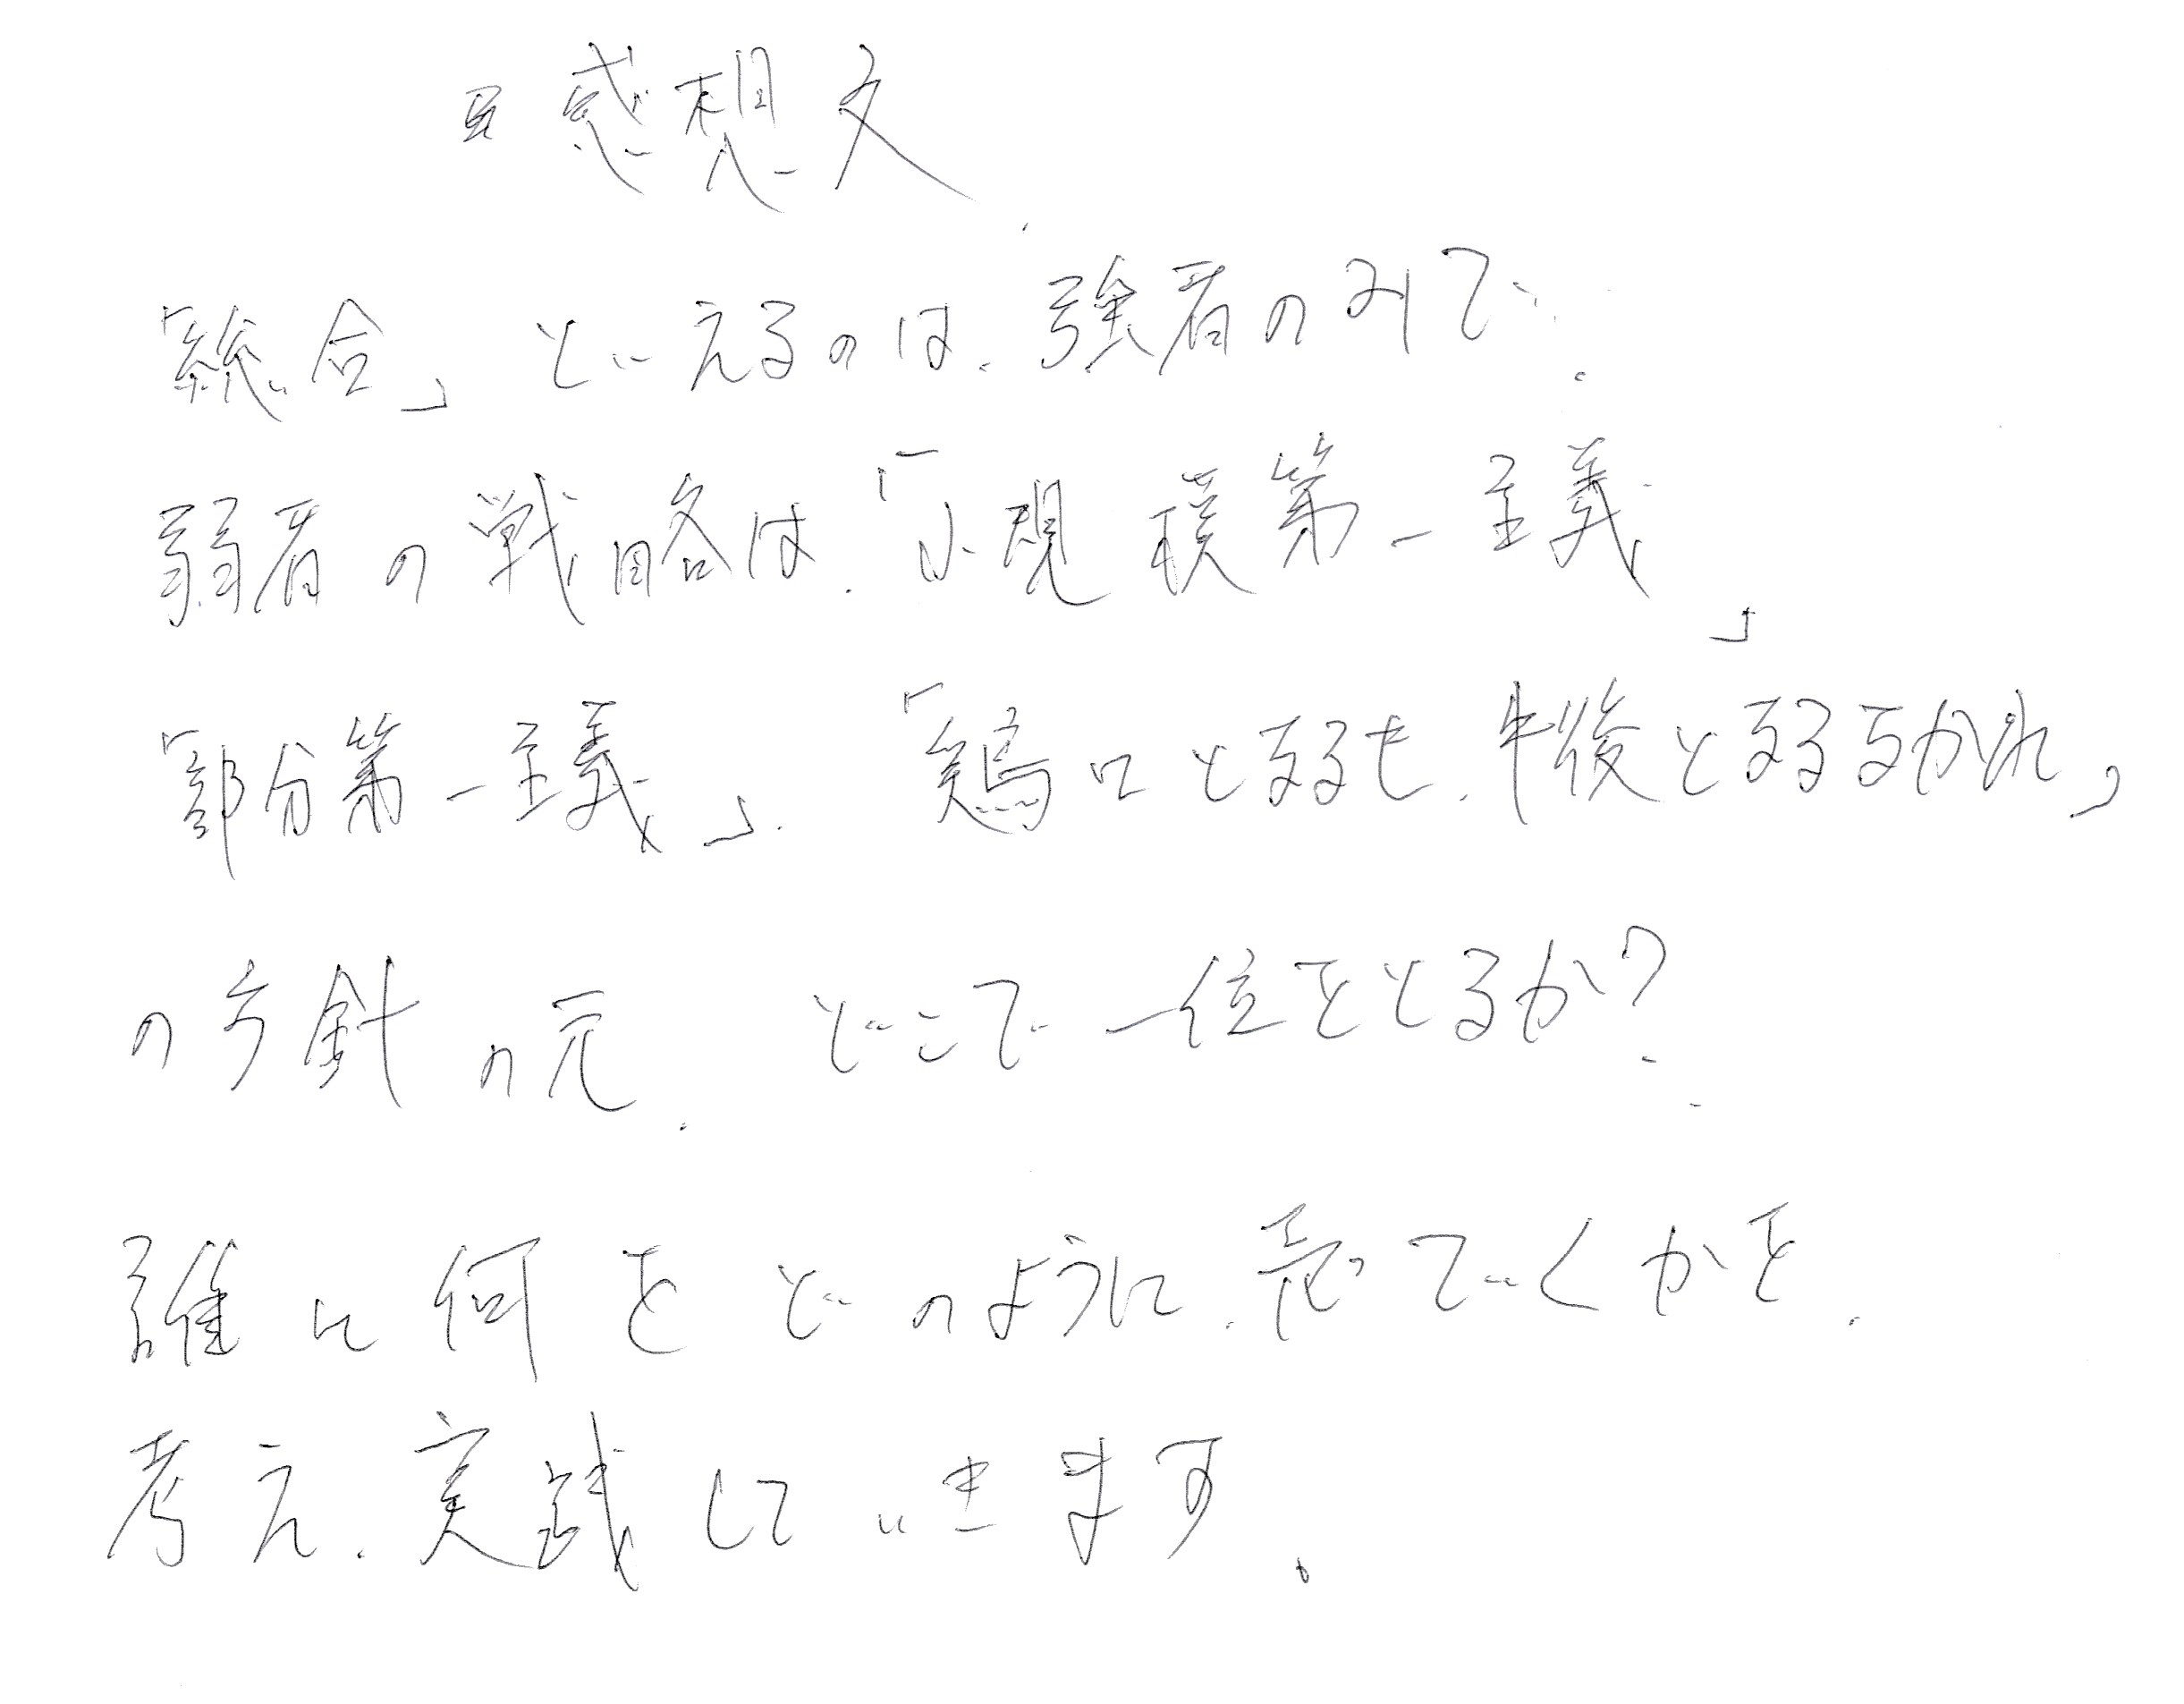 感想文
「総合」といえるのは、強者のみで、
弱者の戦略は、「小規模第一主義」
「部分第一主義」、「鶏口となるも、牛後となるなかれ」
の方針の元、どこで一位をとるか？
誰に何をどのように、売っていくかを、
考え、実践していきます。